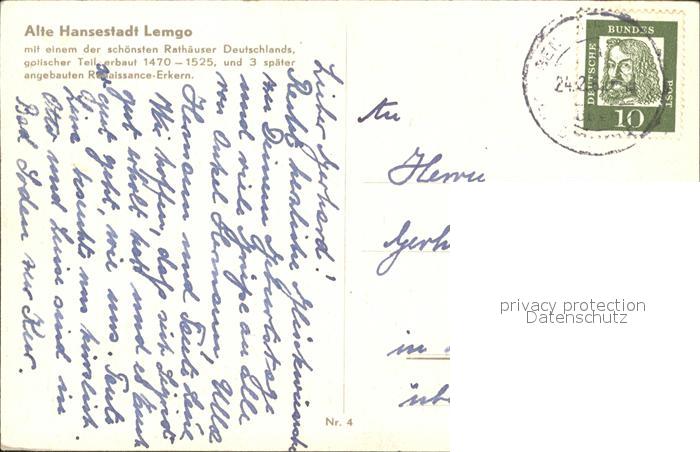 Alte Hansestadt Lemgo
mit einem der schönsten Rathäuser Deutschlands,
gotischer Teil erbaut 1470 – 1525, und 3 später
angebauten Renaissance-Erkern.
Lieber Gerhard!
Recht herzliche Glückwünsche
zu Deinem Geburtstage
und viele Grüße an alle
von Onkel Hermann, Ulla
Hermann und Tante
Wir hoffen, daß sich Sigrid
gut erholt hat und es Euch
so gut geht, wie uns. Tante
besuchte uns kürzlich.
Otto und Luise sind in
Bad Soden zur Kur.
Nr. 4
An
Herrn
Gerh
in
über
DEUTSCHE
BUNDES
POST
10
24.
privacy protection
Datenschutz